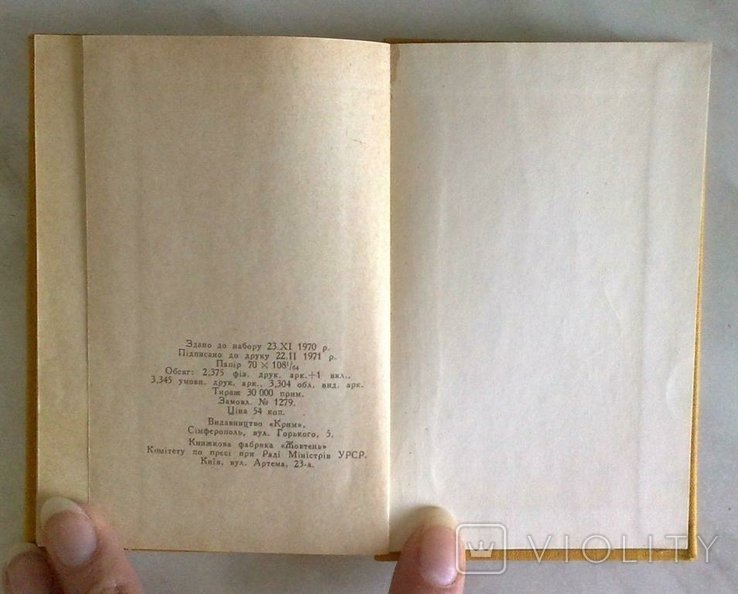 Здано до набору 23.XI 1970 р.
Підписано до друку 22.II 1971 р.
Папір 70 × 108¹/₆₄
Обсяг: 2,375 фіз. друк. арк.+1 вкл.,
3,345 умовн. друк. арк., 3,304 обл. вид. арк.
Тираж 30 000 прим.
Замовл. № 1279.
Ціна 54 коп.
Видавництво «Крим»,
Сімферополь, вул. Горького, 5.
Книжкова фабрика «Жовтень»
Комітету по пресі при Раді Міністрів УРСР.
Київ, вул. Артема, 23-а.
VIOLITY